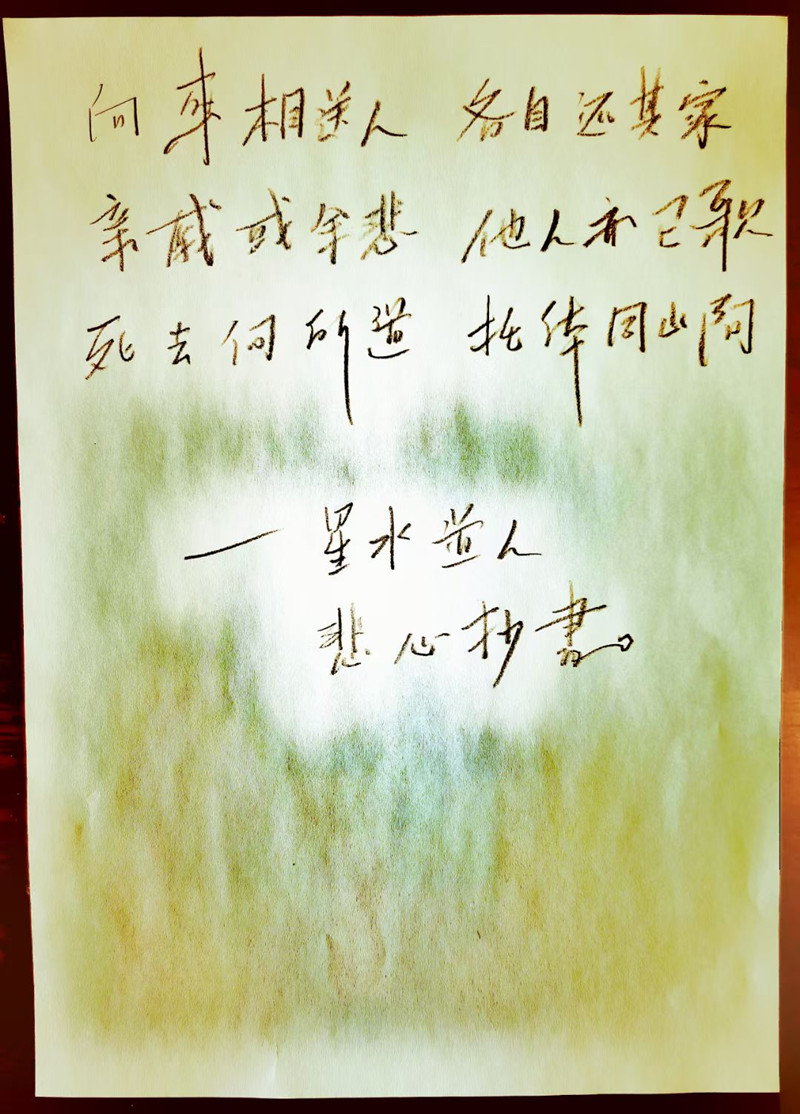 向来相送人 各自还其家
亲戚或余悲 他人亦已歌
死去何所道 托体同山阿
一星水道人
悲心抄书。